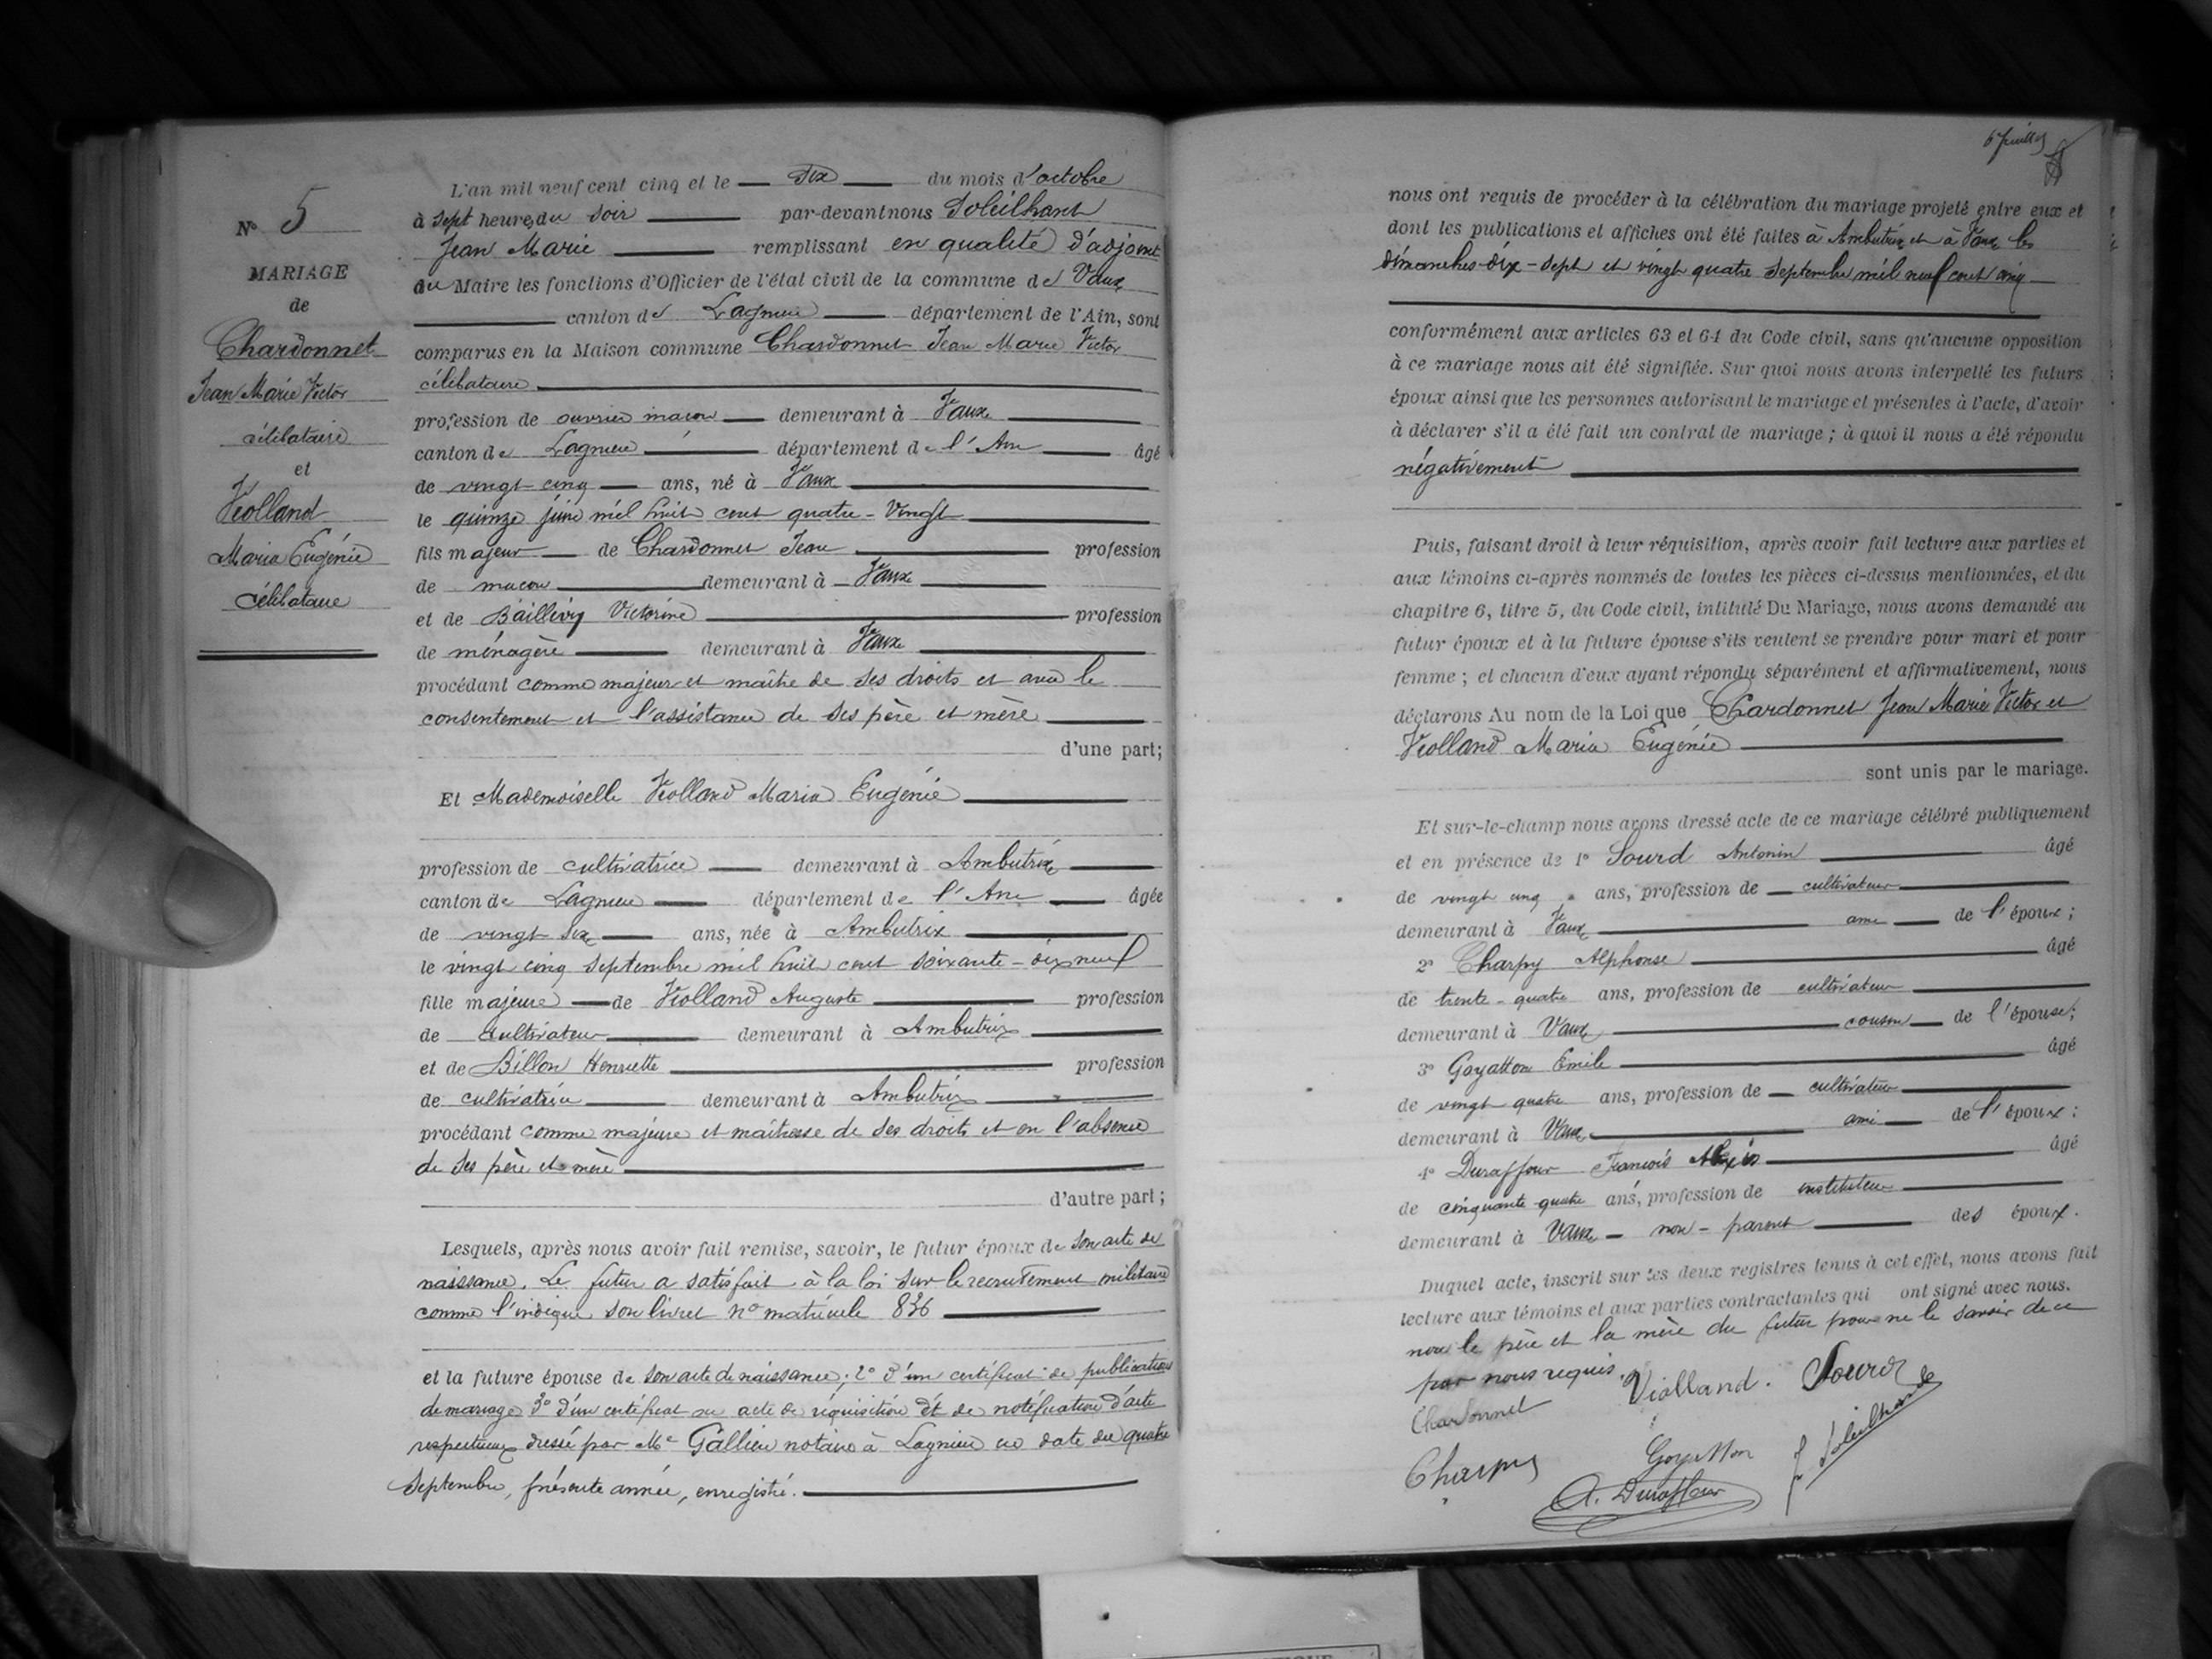 N° 5
MARIAGE
de
Chardonnet
Jean Marie Victor
célibataire
et
Violland
Maria Eugénie
célibataire
L'an mil neuf cent cinq et le six du mois d'octobre
à sept heures du soir par-devant nous Soleilhant
Jean Marie remplissant en qualité d'adjoint
du Maire les fonctions d'Officier de l'état civil de la commune de Vaux
canton de Lagnieu département de l'Ain, sont
comparus en la Maison commune Chardonnet Jean Marie Victor
célibataire
profession de ouvrier maçon demeurant à Vaux
canton de Lagnieu département de l'Ain âgé
de vingt-cinq ans, né à Vaux
le quinze juin mil huit cent quatre-vingt
fils majeur de Chardonnet Jean profession
de maçon demeurant à Vaux
et de Baillivy Victorine profession
de ménagère demeurant à Vaux
procédant comme majeur et maître de ses droits et avec le
consentement et l'assistance de ses père et mère
d'une part;
Et Mademoiselle Violland Maria Eugénie
profession de cultivatrice demeurant à Ambutrix
canton de Lagnieu département de l'Ain âgée
de vingt six ans, née à Ambutrix
le vingt cinq septembre mil huit cent soixante-dix neuf
fille majeure de Violland Auguste profession
de cultivateur demeurant à Ambutrix
et de Billon Henriette profession
de cultivatrice demeurant à Ambutrix
procédant comme majeure et maîtresse de ses droits et en l'absence
de ses père et mère
d'autre part;
Lesquels, après nous avoir fait remise, savoir, le futur époux de son acte de
naissance. Le futur a satisfait à la loi sur le recrutement militaire
comme l'indique son livret n° matricule 836
et la future épouse de son acte de naissance; 2° d'un certificat de publication
de mariage 3° d'un certificat ou acte de réquisition et de notification d'acte
respectueux dressé par Me Gallien notaire à Lagnieu en date du quatre
septembre, présente année, enregistré.
6e feuillet
nous ont requis de procéder à la célébration du mariage projeté entre eux et
dont les publications et affiches ont été faites à Ambutrix et à Vaux les
dimanches dix-sept et vingt quatre septembre mil neuf cent cinq
conformément aux articles 63 et 64 du Code civil, sans qu'aucune opposition
à ce mariage nous ait été signifiée. Sur quoi nous avons interpellé les futurs
époux ainsi que les personnes autorisant le mariage et présentes à l'acte, d'avoir
à déclarer s'il a été fait un contrat de mariage; à quoi il nous a été répondu
négativement
Puis, faisant droit à leur réquisition, après avoir fait lecture aux parties et
aux témoins ci-après nommés de toutes les pièces ci-dessus mentionnées, et du
chapitre 6, titre 5, du Code civil, intitulé Du Mariage, nous avons demandé au
futur époux et à la future épouse s'ils veulent se prendre pour mari et pour
femme; et chacun d'eux ayant répondu séparément et affirmativement, nous
déclarons Au nom de la Loi que Chardonnet Jean Marie Victor et
Violland Maria Eugénie
sont unis par le mariage.
Et sur-le-champ nous avons dressé acte de ce mariage célébré publiquement
et en présence de 1° Sourd Antonin âgé
de vingt cinq ans, profession de cultivateur
demeurant à Vaux ami de l'époux;
2° Charpy Alphonse âgé
de trente-quatre ans, profession de cultivateur
demeurant à Vaux cousin de l'épouse;
3° Goyatton Emile âgé
de vingt quatre ans, profession de cultivateur
demeurant à Vaux ami de l'époux;
4° Duraffour François Alexis âgé
de cinquante quatre ans, profession de instituteur
demeurant à Vaux - non-parent des époux.
Duquel acte, inscrit sur les deux registres tenus à cet effet, nous avons fait
lecture aux témoins et aux parties contractantes qui ont signé avec nous.
non le père et la mère du futur pour ne le savoir de ce
par nous requis.
Chardonnet Violland. Sourd
Charpy Goyatton J Soleilhant
A. Duraffour